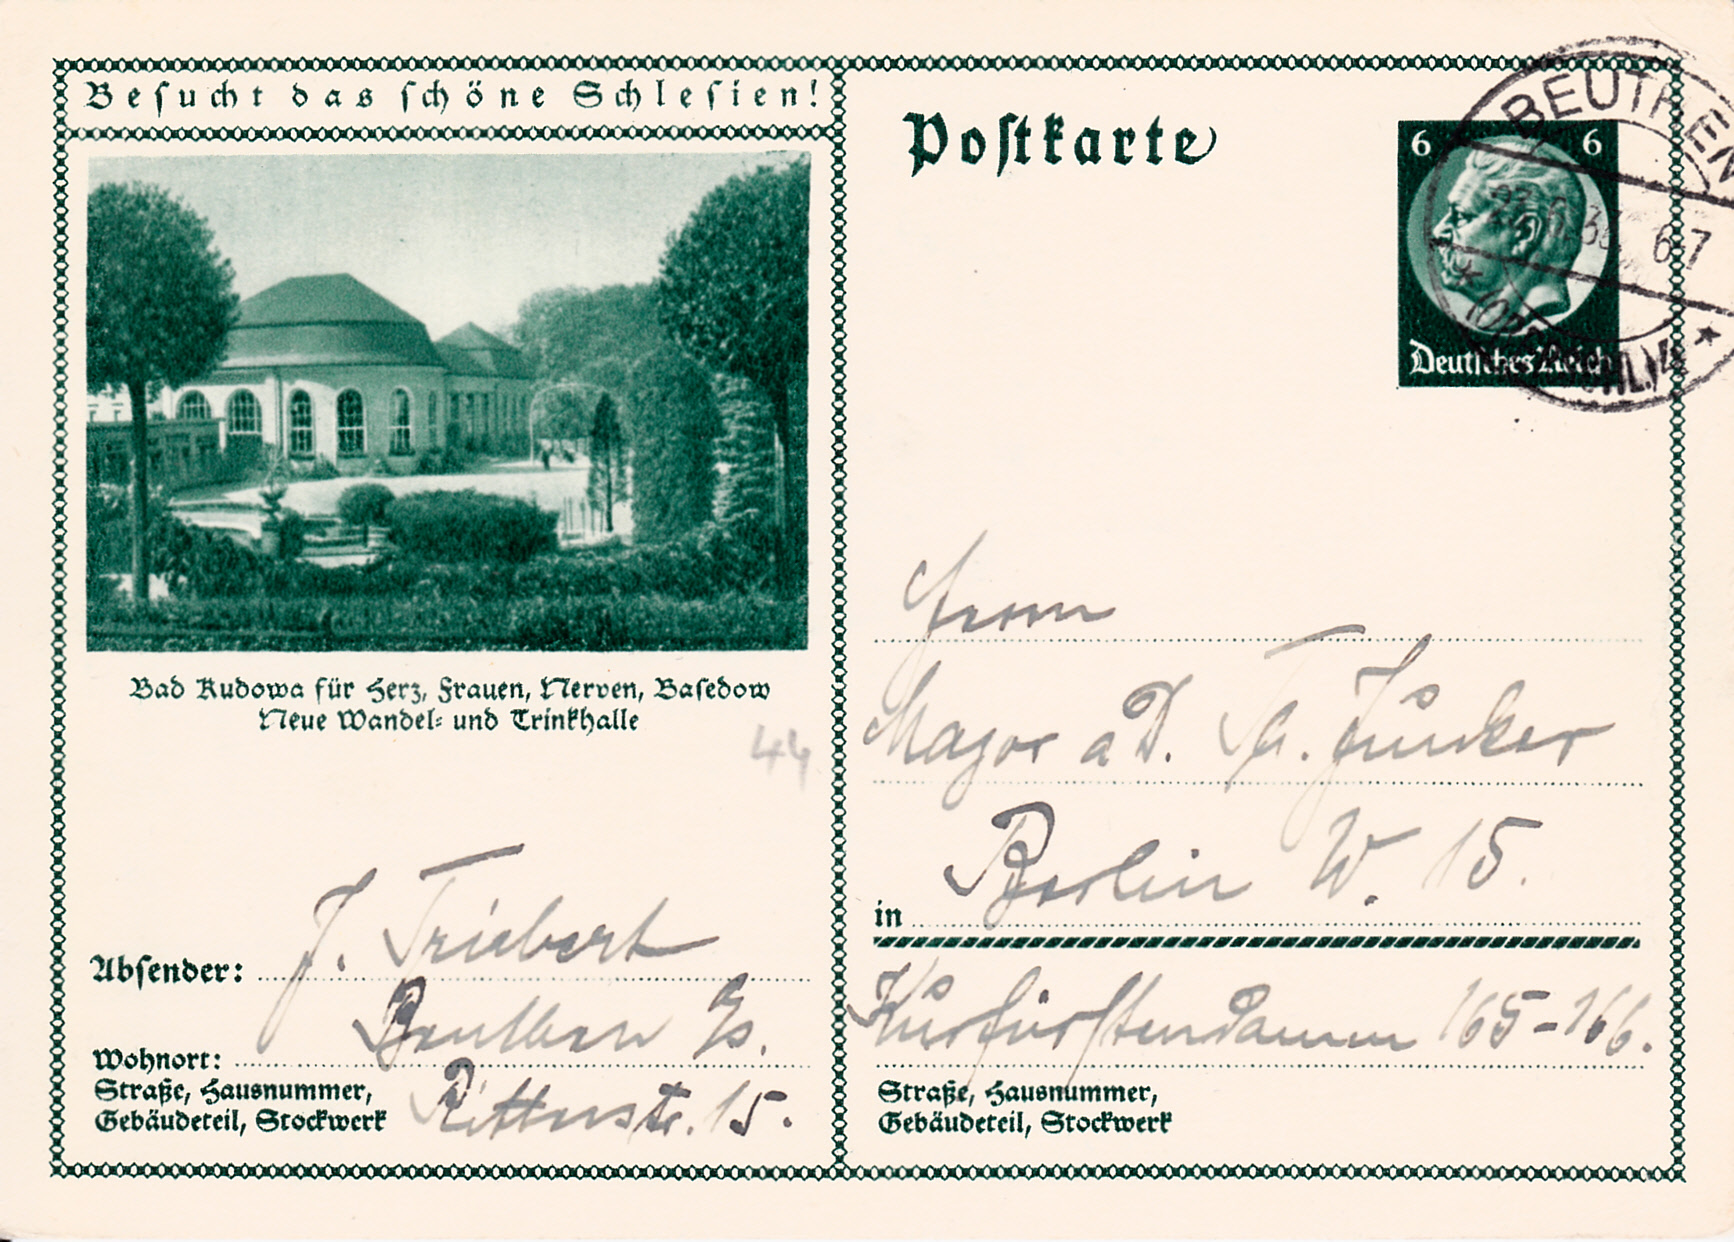 Besucht das schöne Schlesien!
Postkarte
6 6
Deutsches Reich
BEUTHEN
33 6-7
Bad Kudowa für Herz, Frauen, Nerven, Basedow
Neue Wandel- und Trinkhalle
44
Herrn
Major a D. Junker
Berlin W. 15.
in
Kurfürstendamm 165-166.
Straße, Hausnummer,
Gebäudeteil, Stockwerk
J. Triebert
Absender:
Beuthen O/S.
Wohnort:
Straße, Hausnummer,
Gebäudeteil, Stockwerk
Ritterstr. 15.